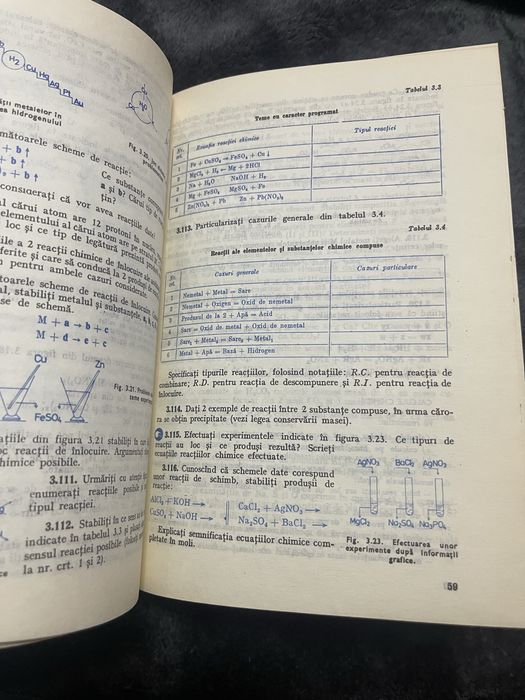 H2 Cu Hg Ag Pt Au
ții metalelor în
ea hidrogenului
mătoarele scheme de reacție:
+ b ↑
+ b ↑
+ b ↑
Ce substanțe
a și b? Cărui tip
țin?
considerați că vor avea reacțiile date?
al cărui atom are 12 protoni în
elementului al cărui atom are pe stratul
loc și ce tip de legătură prezintă
ile a 2 reacții chimice de înlocuire
ferite și care să conducă la 2 produși
pentru ambele cazuri considerate.
toarele scheme de reacții de înlocuire
al, stabiliți metalul și substanțele a, b,
se de schemă.
M + a → b + c
M + d → e + c
Cu Zn
FeSO₄
ațiile din figura 3.21 stabiliți în care
oc reacții de înlocuire. Argumentați
himice posibile.
3.111. Urmăriți cu atenție
enumerați reacțiile posibile
tipul reacției.
3.112. Stabiliți în ce sens
indicate în tabelul 3.3 și
sensul reacției posibile
la nr. crt. 1 și 2).
Tabelul 3.3
Teme cu caracter programat
Nr. crt. Ecuația reacției chimice Tipul reacției
1 Fe + CuSO₄ → FeSO₄ + Cu ↓
2 MgCl₂ + H₂ ← Mg + 2HCl
3 Na + H₂O NaOH + H₂
4 Mg + FeSO₄ MgSO₄ + Fe
5 Zn(NO₃)₂ + Pb Zn + Pb(NO₃)₂
3.113. Particularizați cazurile generale din tabelul 3.4.
Tabelul 3.4
Reacții ale elementelor și substanțelor chimice compuse
Nr. crt. Cazuri generale Cazuri particulare
1 Nemetal + Metal = Sare
2 Nemetal + Oxigen = Oxid de nemetal
3 Produsul de la 2 + Apă = Acid
4 Sare = Oxid de metal + Oxid de nemetal
5 Sare₁ + Metal₁ = Sare₂ + Metal₂
6 Metal + Apă = Bază + Hidrogen
Specificați tipurile reacțiilor, folosind notațiile: R.C. pentru reacția de
combinare; R.D. pentru reacția de descompunere și R.I. pentru reacția de
înlocuire.
3.114. Dați 2 exemple de reacții între 2 substanțe compuse, în urma căro-
ra se obțin precipitate (vezi legea conservării masei).
3.115. Efectuați experimentele indicate în figura 3.23. Ce tipuri de
reacții au loc și ce produși rezultă? Scrieți
ecuațiile reacțiilor chimice efectuate.
3.116. Cunoscînd că schemele date corespund
unor reacții de schimb, stabiliți produșii de
reacție:
AlCl₃ + KOH → CaCl₂ + AgNO₃ →
CuSO₄ + NaOH → Na₂SO₄ + BaCl₂ →
Explicați semnificația ecuațiilor chimice com-
pletate în moli.
AgNO₃ BaCl₂ AgNO₃
MgCl₂ Na₂SO₄ Na₃PO₄
Fig. 3.23. Efectuarea unor
experimente după informații
grafice.
59